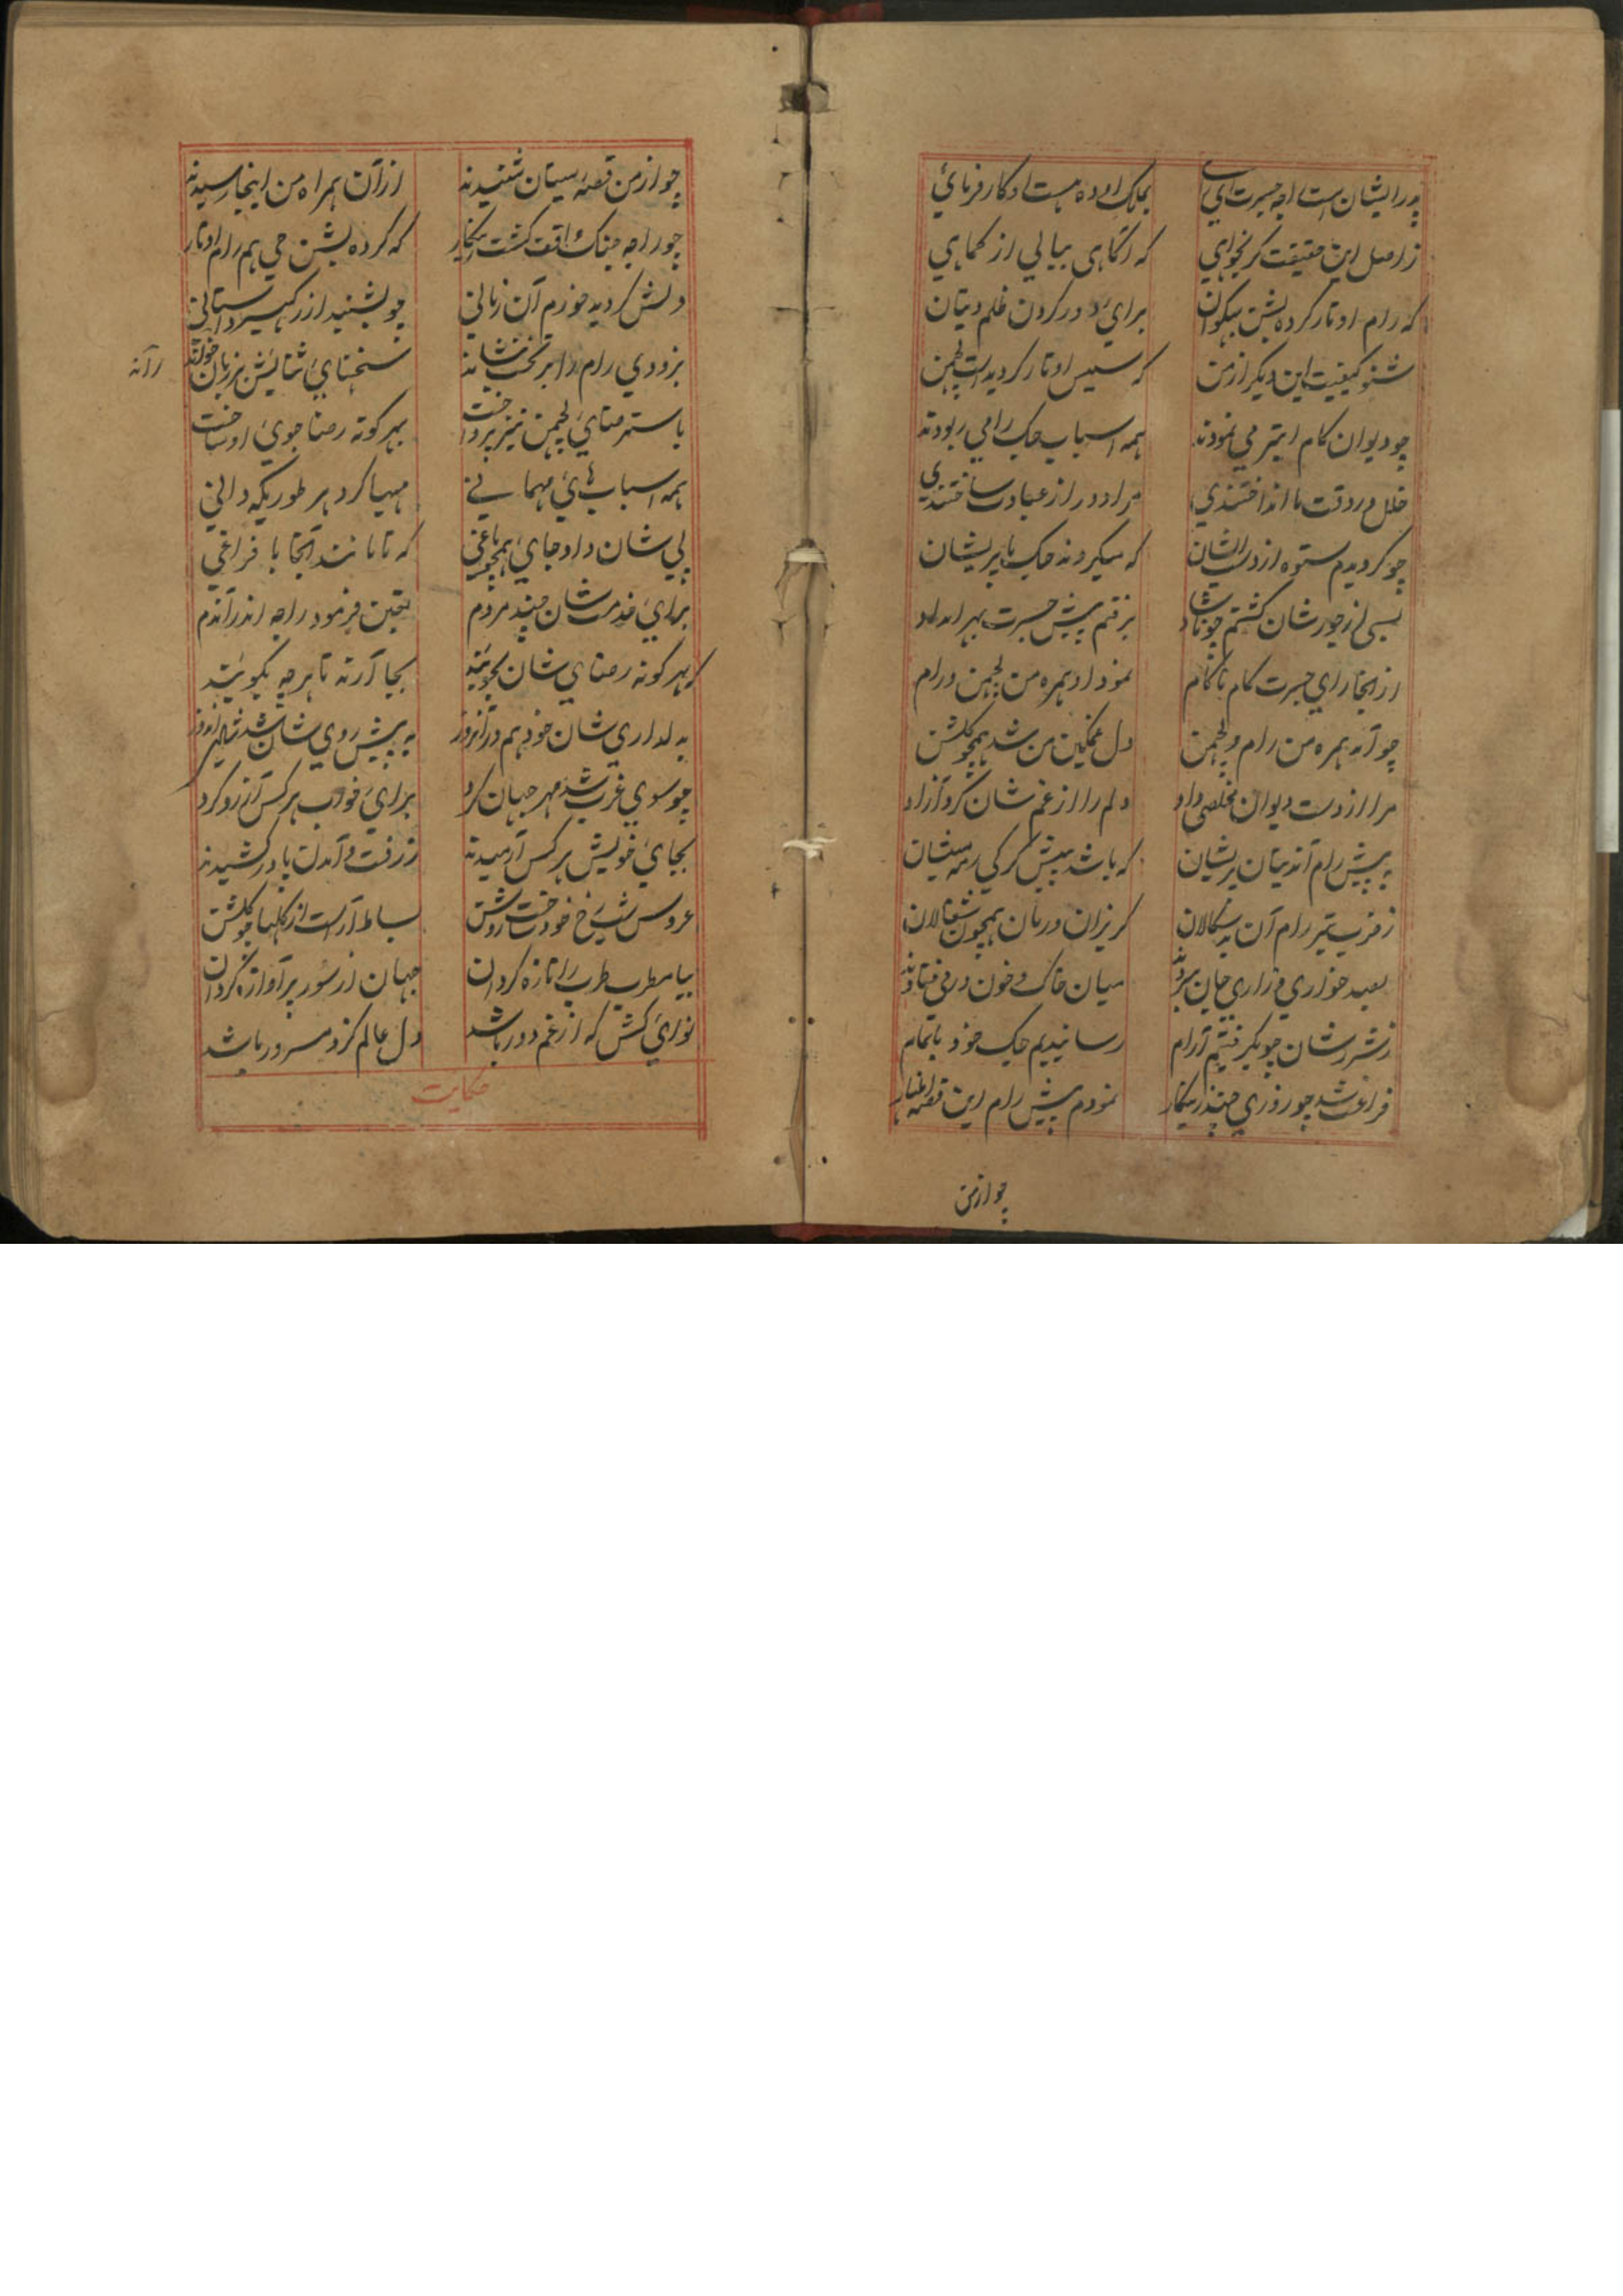 پدر ایشان است راجه جسرت ای رای بملک اوده هست او کارفرمائی
ز اصل این حقیقت گر نجوای که آگاهی بیابی از کماهی
که رام اوتار کرده بشن بیکوان برای دور کردن ظلم دیتان
شنو کیفیت این دیگر از من که سیس اوتار گردیدست لچمن
چو دیوان کام ابتر می نمودند همه اسباب جک را می ربودند
خلل در وقت ما انداختندی مرا دور از عبادت ساختندی
چو گردیدم ستوه از دست ایشان که میکردند جک با پریشان
بسی از جور شان گشتم چو ناشاد برفتم پیش جسرت بهر امداد
از آنجا رای جسرت کام ناکام نمود او همره من لچمن و رام
چو آمد همره من رام و لچمن دل غمگین من شد همچو گلشن
مرا از دست دیوان مخلصی داد دلم را از غم شان کرد آزاد
به پیش رام آن دیتان پریشان که باشد پیش گرگی رمه میشان
ز ضرب تیر رام آن بد سگالان گریزان و رمان همچون شغالان
بصد خواری و زاری جان سپردند میان خاک و خون در می فتادند
ز شر شان چو بگرفتیم آرام رسانیدیم جک خود باتمام
فراغت شد چو روزی چند زینکار نمودم پیش رام این قصه اظهار
چو از من
چو از من قصه سیتان شنیدند از آن همراه من اینجا رسیدند
چو راجه جنک واقف گشت زینکار که کرده بشن جی هم رام اوتار
دلش گردید خورم آن زمانی چو بشنید از رکهیسر داستانی
بزودی رام را بر تخت بنشاند سخنهای ستایش بر زبان خواند
راند
باسترضای لچمن نیز پرداخت بهر گونه رضاجوی او ساخت
همه اسباب هائ مهمانی مهیا کرد هر طوریکه دانی
پی شان داد جای همچو باغی که تا مانند آنجا با فراغی
برای خدمت شان چند مردم تعین فرمود راجه اندر آندم
بهر گونه رضای شان بجویند بجا آرند تا هر چه بگویند
به دلداری شان خود هم در آنروز به پیش روی شان شد شاهی اندوز
چو سوی غرب شد مهر جهان گرد برای خواب هر کس آرزو کرد
بجای خویش هر کس آرمیدند ز رفت و آمدن پا در کشیدند
عروس شب رخ خود ساخت روشن بساط آراست از گلها چو گلشن
بیا مطرب طرب را تازه گردان جهان از سور پر آوازه گردان
نوای کش که از غم دور باشد دل عالم کزو مسرور باشد
حکایت